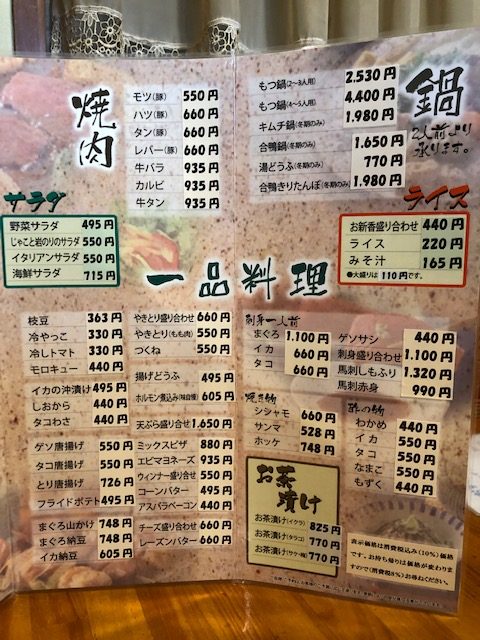 焼肉
モツ(豚) 550円
ハツ(豚) 660円
タン(豚) 660円
レバー(豚) 660円
牛バラ 935円
カルビ 935円
牛タン 935円
鍋
2人前より
承ります。
もつ鍋(2〜3人用) 2.530円
もつ鍋(4〜5人用) 4.400円
キムチ鍋(冬期のみ) 1.980円
合鴨鍋(冬期のみ) 1.650円
湯どうふ(冬期のみ) 770円
合鴨きりたんぽ(冬期のみ) 1.980円
サラダ
野菜サラダ 495円
じゃこと岩のりのサラダ 550円
イタリアンサラダ 550円
海鮮サラダ 715円
ライス
お新香盛り合わせ 440円
ライス 220円
みそ汁 165円
●大盛りは110円です。
一品料理
枝豆 363円
冷やっこ 330円
冷しトマト 330円
モロキュー 440円
イカの沖漬け 495円
しおから 440円
タコわさ 440円
ゲソ唐揚げ 550円
タコ唐揚げ 550円
とり唐揚げ 726円
フライドポテト 495円
まぐろ山かけ 748円
まぐろ納豆 748円
イカ納豆 605円
やきとり盛り合わせ 660円
やきとり(もも肉) 550円
つくね 550円
揚げどうふ 495円
ホルモン煮込み(味自慢) 605円
天ぷら盛り合せ 1.650円
ミックスピザ 880円
エビマヨネーズ 935円
ウィンナー盛合せ 550円
コーンバター 495円
アスパラベーコン 440円
チーズ盛り合わせ 660円
レーズンバター 660円
刺身一人前
まぐろ 1.100円
イカ 660円
タコ 550円
ゲソサシ 440円
刺身盛り合わせ 1.100円
馬刺しもふり 1.320円
馬刺赤身 990円
焼き物
シシャモ 660円
サンマ 528円
ホッケ 748円
酢の物
わかめ 440円
イカ 550円
タコ 550円
なまこ 550円
もずく 440円
お茶漬け
お茶漬け(イクラ) 825円
お茶漬け(タラコ) 770円
お茶漬け(サケ・梅) 770円
表示価格は消費税込み(10%)価格
です。お持ち帰りは価格が変わりま
すので(消費税8%)お尋ねください。